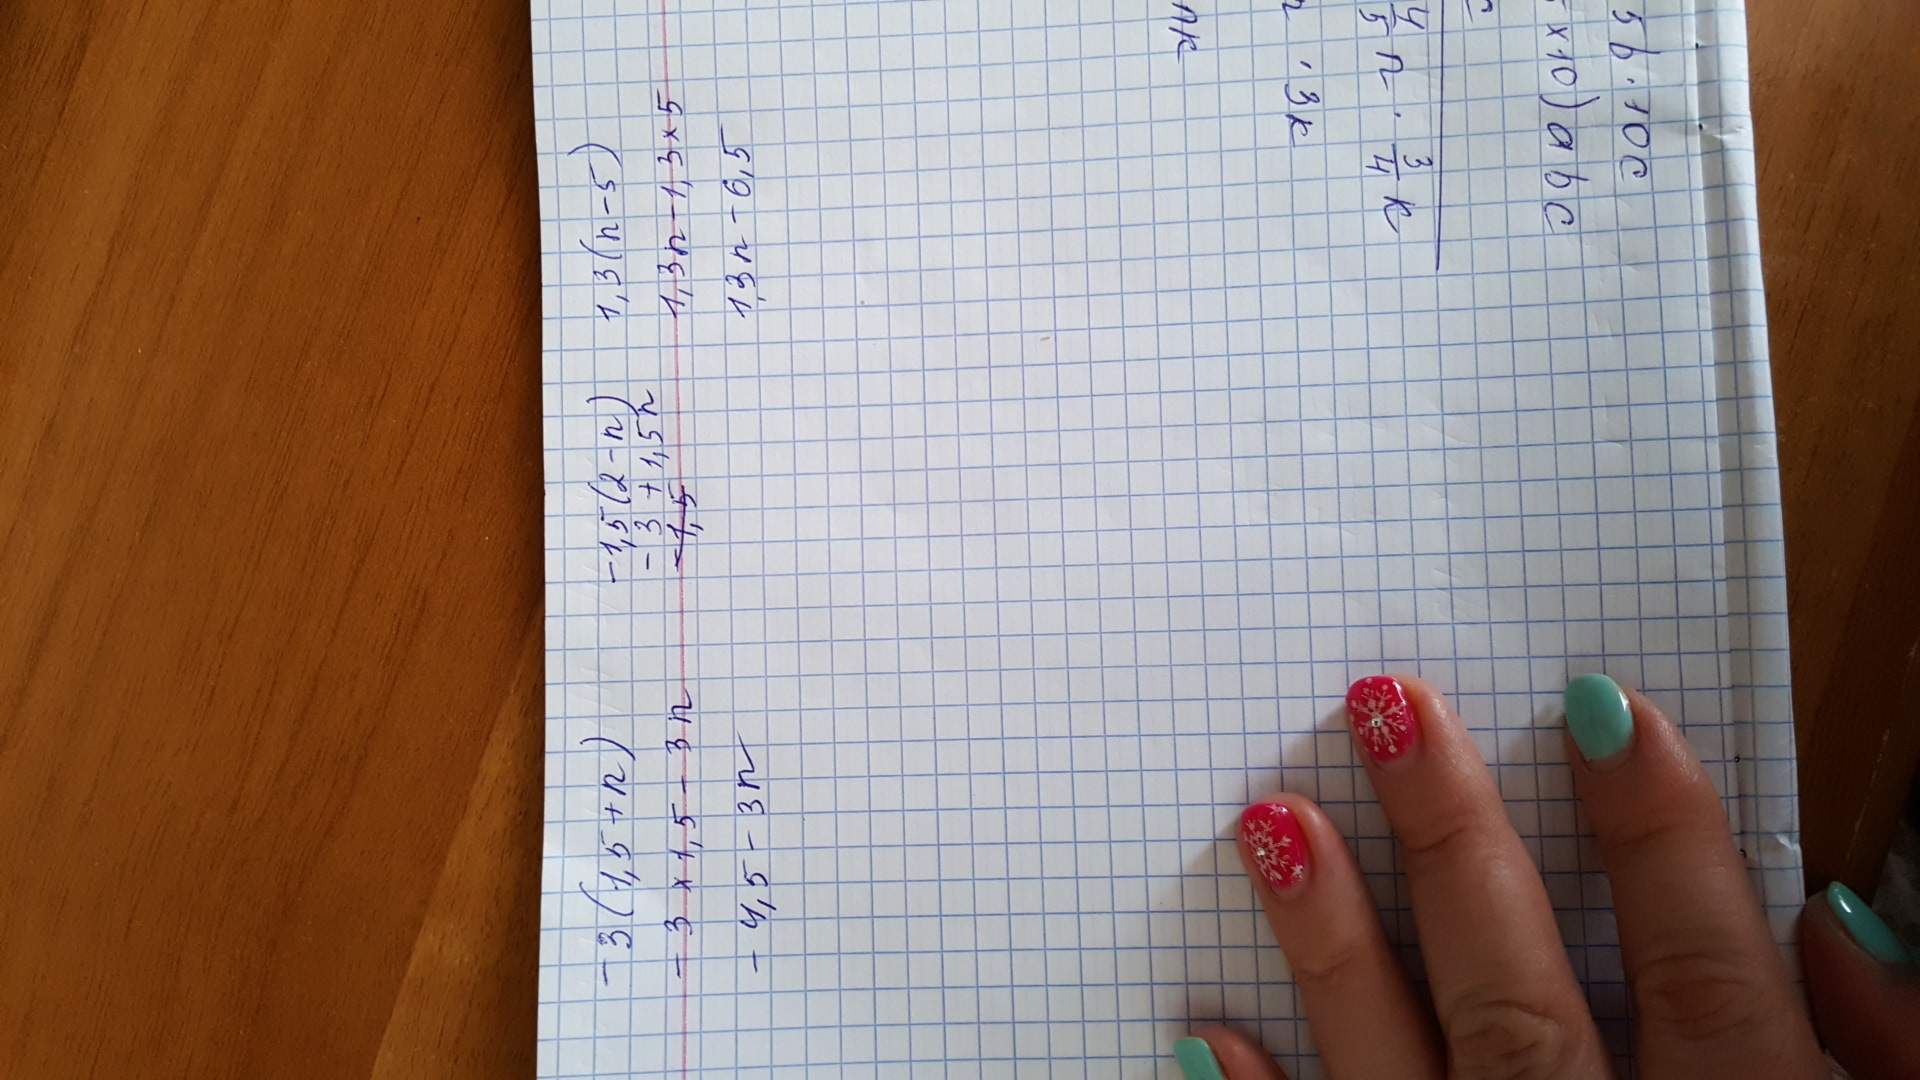 -3(1,5+n)
-3×1,5-3n
-4,5-3n
-1,5(2-n)
-3+1,5n
-1,5
1,3(n-5)
1,3n-1,3×5
1,3n-6,5
5b·10c
×10)abc
4/5 n · 3/4 k
·3k
nk